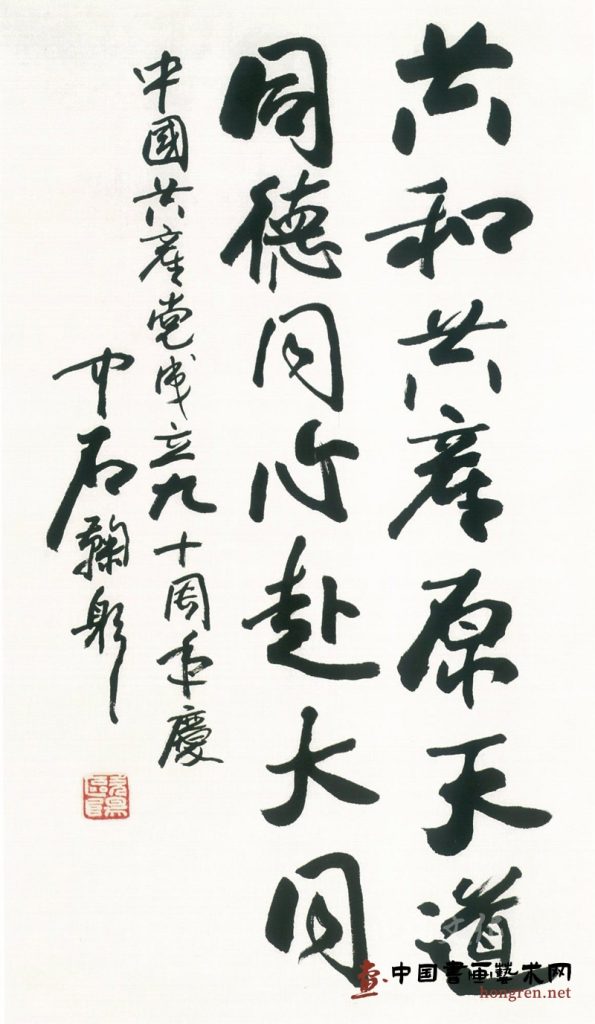 共和共產原天道
同德同心赴大同
中國共產党成立九十周年慶
中石鞠躬
中国書画藝术网
hongren.net